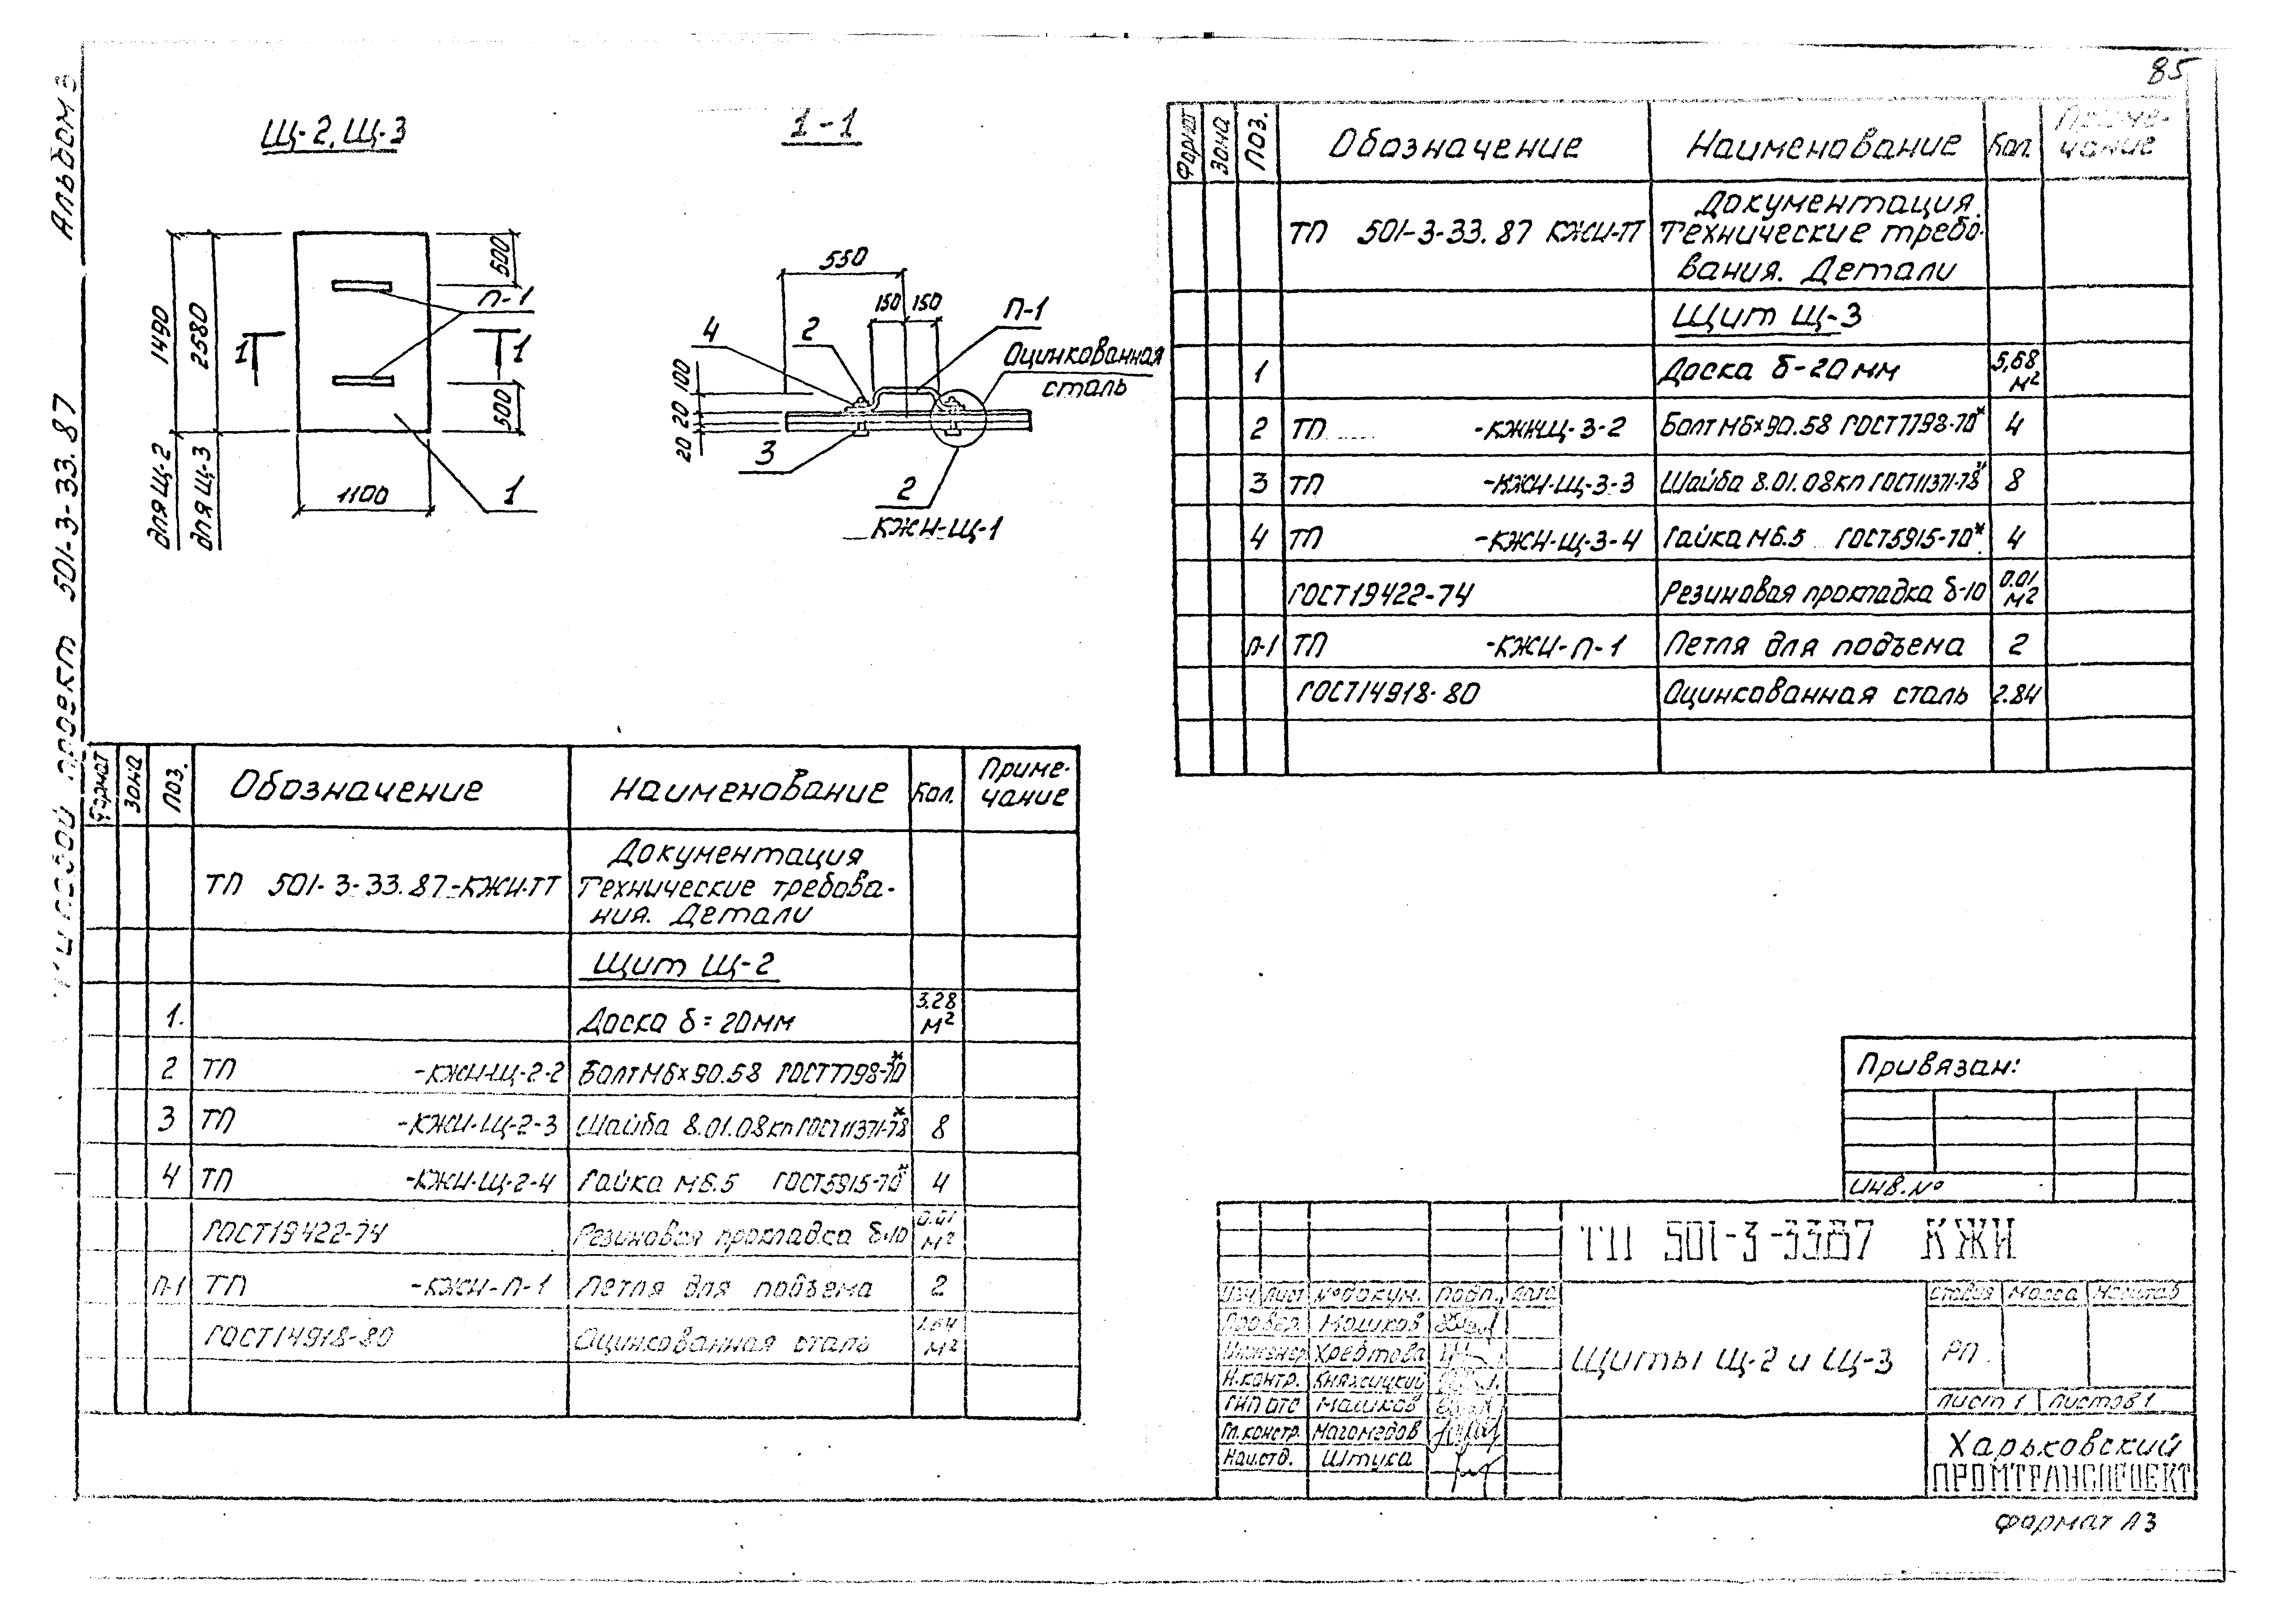 85
Альбом 3
Типовой проект 501-3-33.87
Щ-2, Щ-3
1-1
1490
2580
для Щ-2
для Щ-3
500
П-1
1
1
500
1100
1
550
150
150
П-1
4
2
Оцинкованная
сталь
100
20
20
3
2
КЖИ-Щ-1
Формат
Зона
Поз.
Обозначение
Наименование
Кол.
Приме-
чание
Документация.
ТП 501-3-33.87 КЖИ-ТТ
Технические требо-
вания. Детали
Щит Щ-3
1 Доска δ-20мм 5,68 м²
2 ТП -КЖИ-Щ-3-2 Болт М6×90.58 ГОСТ7798-70* 4
3 ТП -КЖИ-Щ-3-3 Шайба 8.01.08кп ГОСТ11371-78* 8
4 ТП -КЖИ-Щ-3-4 Гайка М6.5 ГОСТ5915-70* 4
ГОСТ19422-74 Резиновая прокладка δ-10 0.01 м²
П-1 ТП -КЖИ-П-1 Петля для подъема 2
ГОСТ14918-80 Оцинкованная сталь 2.84
Формат
Зона
Поз.
Обозначение
Наименование
Кол.
Приме-
чание
Документация
ТП 501-3-33.87-КЖИ-ТТ
Технические требова-
ния. Детали
Щит Щ-2
1. Доска δ=20мм 3.28 м²
2 ТП -КЖИ-Щ-2-2 Болт М6×90.58 ГОСТ7798-70*
3 ТП -КЖИ-Щ-2-3 Шайба 8.01.08кп ГОСТ11371-78* 8
4 ТП -КЖИ-Щ-2-4 Гайка М6.5 ГОСТ5915-70* 4
ГОСТ19422-74 Резиновая прокладка δ-10 0.01 м²
П-1 ТП -КЖИ-П-1 Петля для подъема 2
ГОСТ14918-80 Оцинкованная сталь 1.64 м²
Привязан:
Инв.№
ТП 501-3-33.87 КЖИ
Изм. Лист №докум. Подп. Дата
Провер. Машков
Инженер Хребтова
Н.контр. Княжицкий
ГИП ОТС Машков
Гл.констр. Магомедов
Нач.отд. Штука
Щиты Щ-2 и Щ-3
Стадия Масса Масштаб
РП
Лист 1 Листов 1
Харьковский
ПРОМТРАНСПРОЕКТ
Формат А3